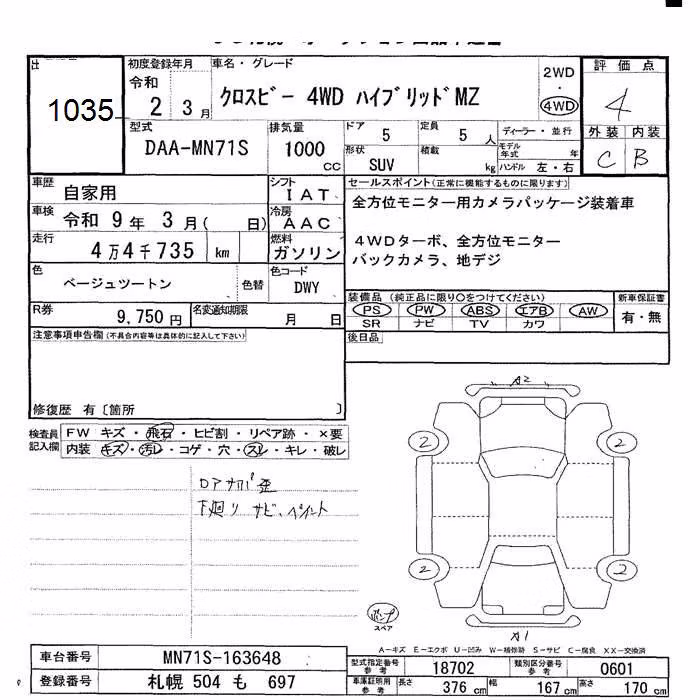 1035
初度登録年月
令和
2 3月
車名・グレード
クロスビー 4WD ハイブリッドMZ
2WD
・
4WD
評価点
4
外装 内装
C B
型式
DAA-MN71S
排気量
1000
cc
ドア 5
定員 5人
形状
SUV
積載
kg
ディーラー・並行
モデル
年式
年
ハンドル 左・右
車歴
自家用
シフト
IAT
車検
令和 9年 3月( 日)
冷房
AAC
走行
4万4千735 km
燃料
ガソリン
色
ベージュツートン
色替
色コード
DWY
R券
9,750円
名変通知期限
月 日
セールスポイント(正常に機能するものに限ります)
全方位モニター用カメラパッケージ装着車
4WDターボ、全方位モニター
バックカメラ、地デジ
装備品(純正品に限り○をつけてください)
PS PW ABS エアB AW
SR ナビ TV カワ
新車保証書
有・無
後日品
注意事項申告欄(不具合内容等は具体的に記入して下さい)
修復歴 有〔箇所 〕
検査員
記入欄
FW キズ・飛石・ヒビ割・リペア跡・×要
内装 キズ・汚レ・コゲ・穴・スレ・キレ・破レ
下廻り サビ、ペイント
A2
2 2
2 2
A1
スペア
A−キズ E−エクボ U−凹み W−補修跡 S−サビ C−腐食 XX−交換済
車台番号
MN71S-163648
登録番号
札幌 504 も 697
型式指定番号
参考
18702
類別区分番号
参考
0601
車庫証明用
参考
長さ 376 cm
幅 167 cm
高さ 170 cm